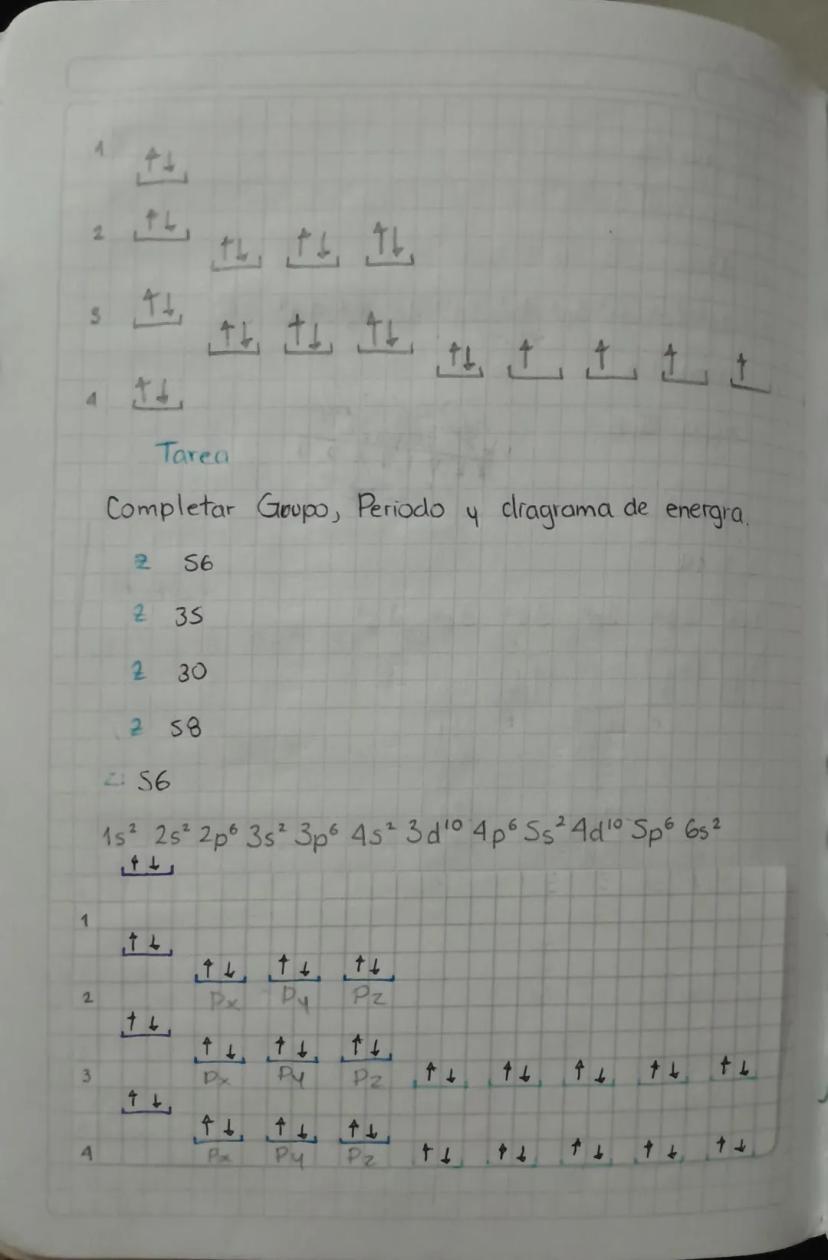 1 ↑↓
2 ↑↓ ↑↓ ↑↓ ↑↓
3 ↑↓ ↑↓ ↑↓ ↑↓ ↑↓ ↑ ↑ ↑ ↑
4 ↑↓
Tarea
Completar Grupo, Periodo y diagrama de energia.
z 56
z 35
z 30
z 58
z 56
1s² 2s² 2p⁶ 3s² 3p⁶ 4s² 3d¹⁰ 4p⁶ 5s² 4d¹⁰ 5p⁶ 6s²
↑↓
1
↑↓ ↑↓ ↑↓ ↑↓
2 Px Py Pz
↑↓ ↑↓ ↑↓ ↑↓ ↑↓ ↑↓ ↑↓ ↑↓ ↑↓
3 Px Py Pz
↑↓ ↑↓ ↑↓ ↑↓ ↑↓ ↑↓ ↑↓ ↑↓ ↑↓
4 Px Py Pz